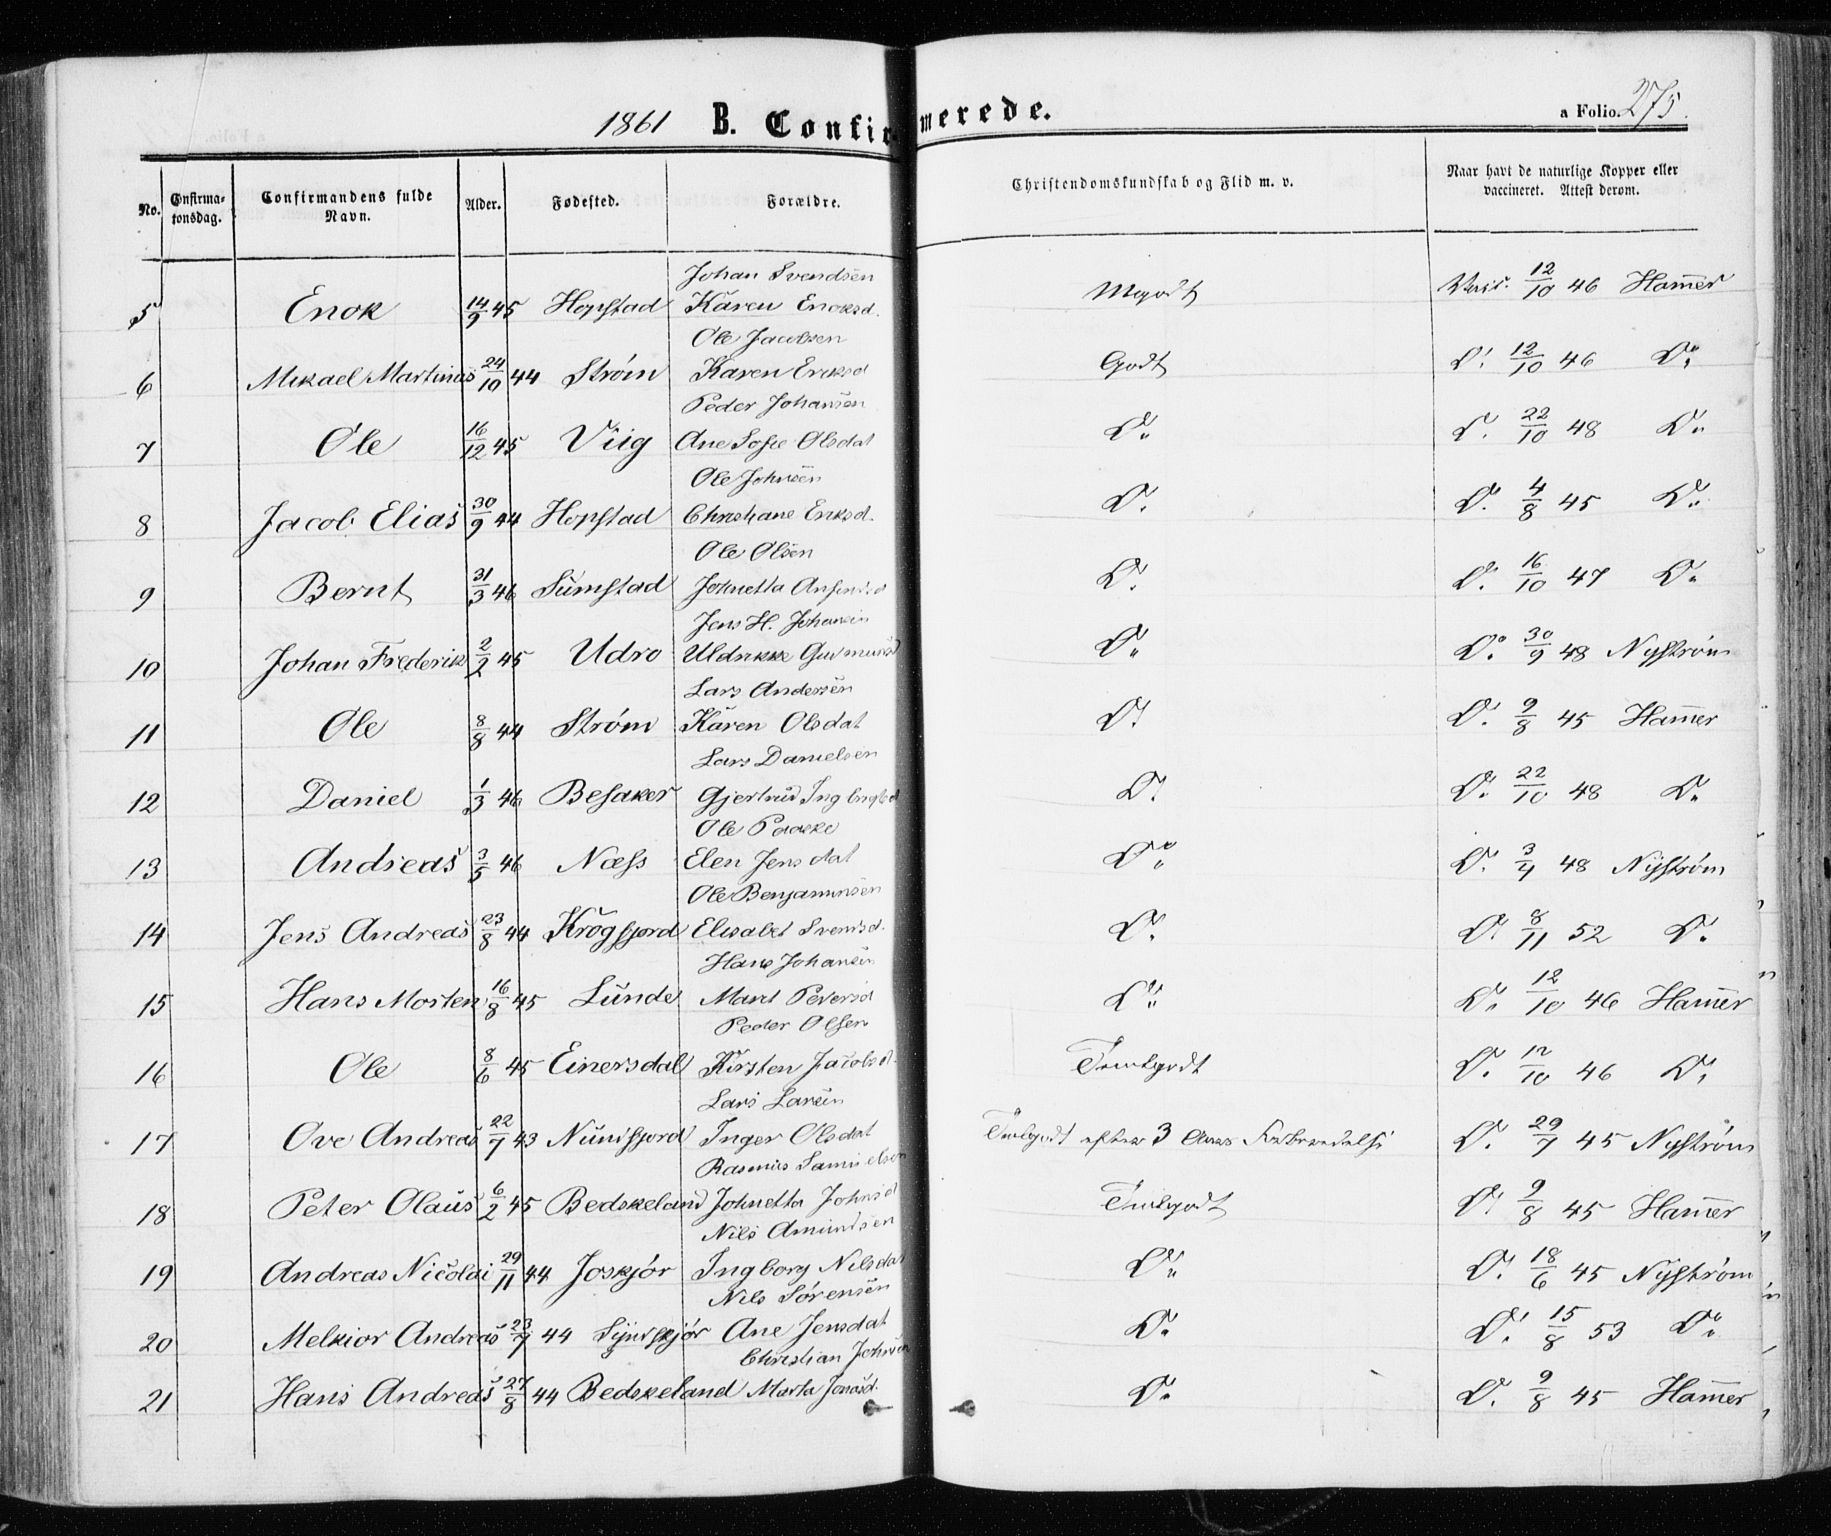 1861 B. Confirmerede. a Folio. 275.
No. Cnfirma- Confirmandens fulde Alder. Fødested. Forældre. Christendomskundskab og Flid m. v. Naar havt de naturlige Kopper eller
tonsdag. Navn. vaccineret. Attest derom.
Johan Svendsen
5 Enok 14/9 45 Hopstad Karen Enoksd. Mgodt 12/10 46 Hamer
Ole Jacobsen
6 Mikael Martinus 24/10 44 Strøm Karen Eriksd Godt D. 12/10 46 Do
Peder Johansen
7 Ole 16/12 45 Viig Ane Sofie Olsdat Do D. 22/10 48 Do
Ole Johnsen
8 Jacob Elias 30/9 44 Hopstad Christiane Eriksd. Do D. 4/8 45 Do
Ole Olsen
9 Bernt 31/3 46 Sumstad Johnetta D. D. 16/10 47 Do
Jens H. Johansen
10 Johan Frederik 2/2 45 Udro Uldrikke Gudmundsd Do Do 30/9 48 Nystrøm
Lars Andersen
11 Ole 8/8 44 Strøm Karen Olsdat D. D. 9/8 45 Hamer
Lars Danielsen
12 Daniel 1/3 46 Besaker Gjertrud Ingebrigtsd D. D. 22/10 48 Do
Ole Paaske
13 Andreas 3/5 46 Næss Elen Jensdat Do D. 3/4 48 Nystrøm
Ole Benjaminsen
14 Jens Andreas 23/8 44 Krogfjord Elisabet Svendsd. D. D. 8/11 52 Do
Hans Johansen
15 Hans Morten 16/8 45 Lunde Maret Petersd Do D. 12/10 46 Hamer
Peder Olsen
16 Ole 8/6 45 Einersdal Kirsten Jacobsd. Temlgodt D. 12/10 46 D.
Lars Larsen
17 Ove Andreas 22/7 43 Nunsfjord Inger Olsdat Temlgodt efter 3 Aars Forberedelse D. 29/7 45 Nystrøm
Rasmus Samuelsen
18 Peter Olaus 6/2 45 Bedskeland Johnetta Johnsd Temlgodt D. 9/8 45 Hamer
Nils Amundsen
19 Andreas Nicolai 29/11 44 Joskjør Ingborg Nilsdat Do D. 18/6 45 Nystrøm
Nils Sørensen
20 Melkior Andreas 23/7 44 Synsskjør Ane Jensdat Do D. 15/8 53 Do
Christian Johnsen
21 Hans Andreas 27/8 44 Bedskeland Marta Jonasd. Do D. 9/8 45 Hamer